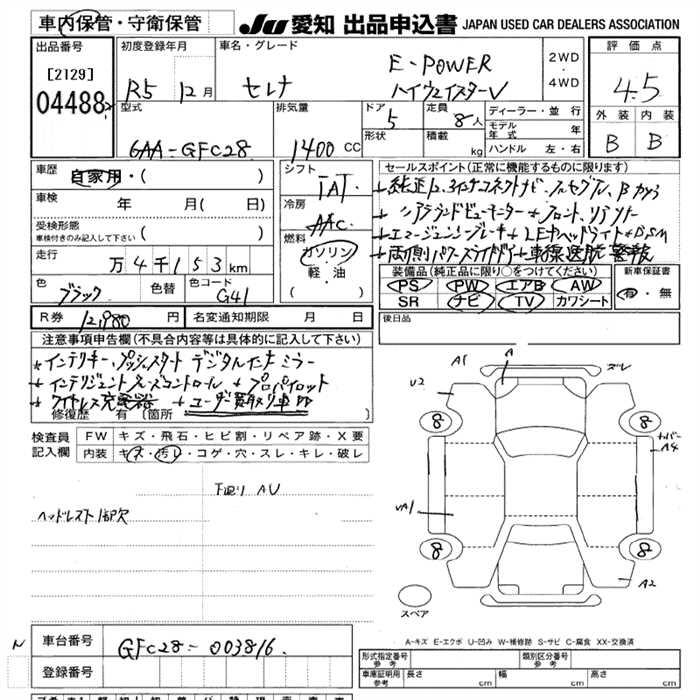 車内保管・守衛保管
JU 愛知 出品申込書 JAPAN USED CAR DEALERS ASSOCIATION
出品番号
[2129]
04488
初度登録年月
R5 12月
車名・グレード
セレナ
E-POWER
ハイウェイスターV
2WD
・
4WD
評価点
4.5
外装 内装
B B
型式
6AA-GFC28
排気量
1400 CC
ドア
5
形状
定員
8人
積載
kg
ディーラー・並行
モデル年式 年
ハンドル 左・右
車歴
自家用・( )
車検
年 月( 日)
受検形態
車検付きのみ記入して下さい ( )
走行
万4千153km
色
ブラック
色替
色コード
G41
シフト
IAT
冷房
AAC
燃料
ガソリン
・
軽・油
( )
セールスポイント(正常に機能するものに限ります)
装備品(純正品に限り○をつけてください)
PS PW エアB AW
SR ナビ TV カワシート
新車保証書
有・無
R券 12,980 円
名変通知期限 月 日
後日品
注意事項申告欄(不具合内容等は具体的に記入して下さい)
*インテリキー、プッシュスタート デジタルインナーミラー
*インテリジェントクルーズコントロール *プロパイロット
*ワイヤレス充電器 *ユーザー買取り車
修復歴 有 [箇所 ]
検査員記入欄
FW キズ・飛石・ヒビ割・リペア跡・X要
内装 キズ・汚れ・コゲ・穴・スレ・キレ・破レ
下廻り AU
ヘッドレスト1部欠
A1
A
ズレ
U2
8
8
カバー
A4
UA1
8
8
A2
スペア
A-キズ E-エクボ U-凹み W-補修跡 S-サビ C-腐食 XX-交換済
N
車台番号
GFC28-003816
登録番号
形式指定番号 参考
類別区分番号 参考
車庫証明用 参考
長さ cm
幅 cm
高さ cm